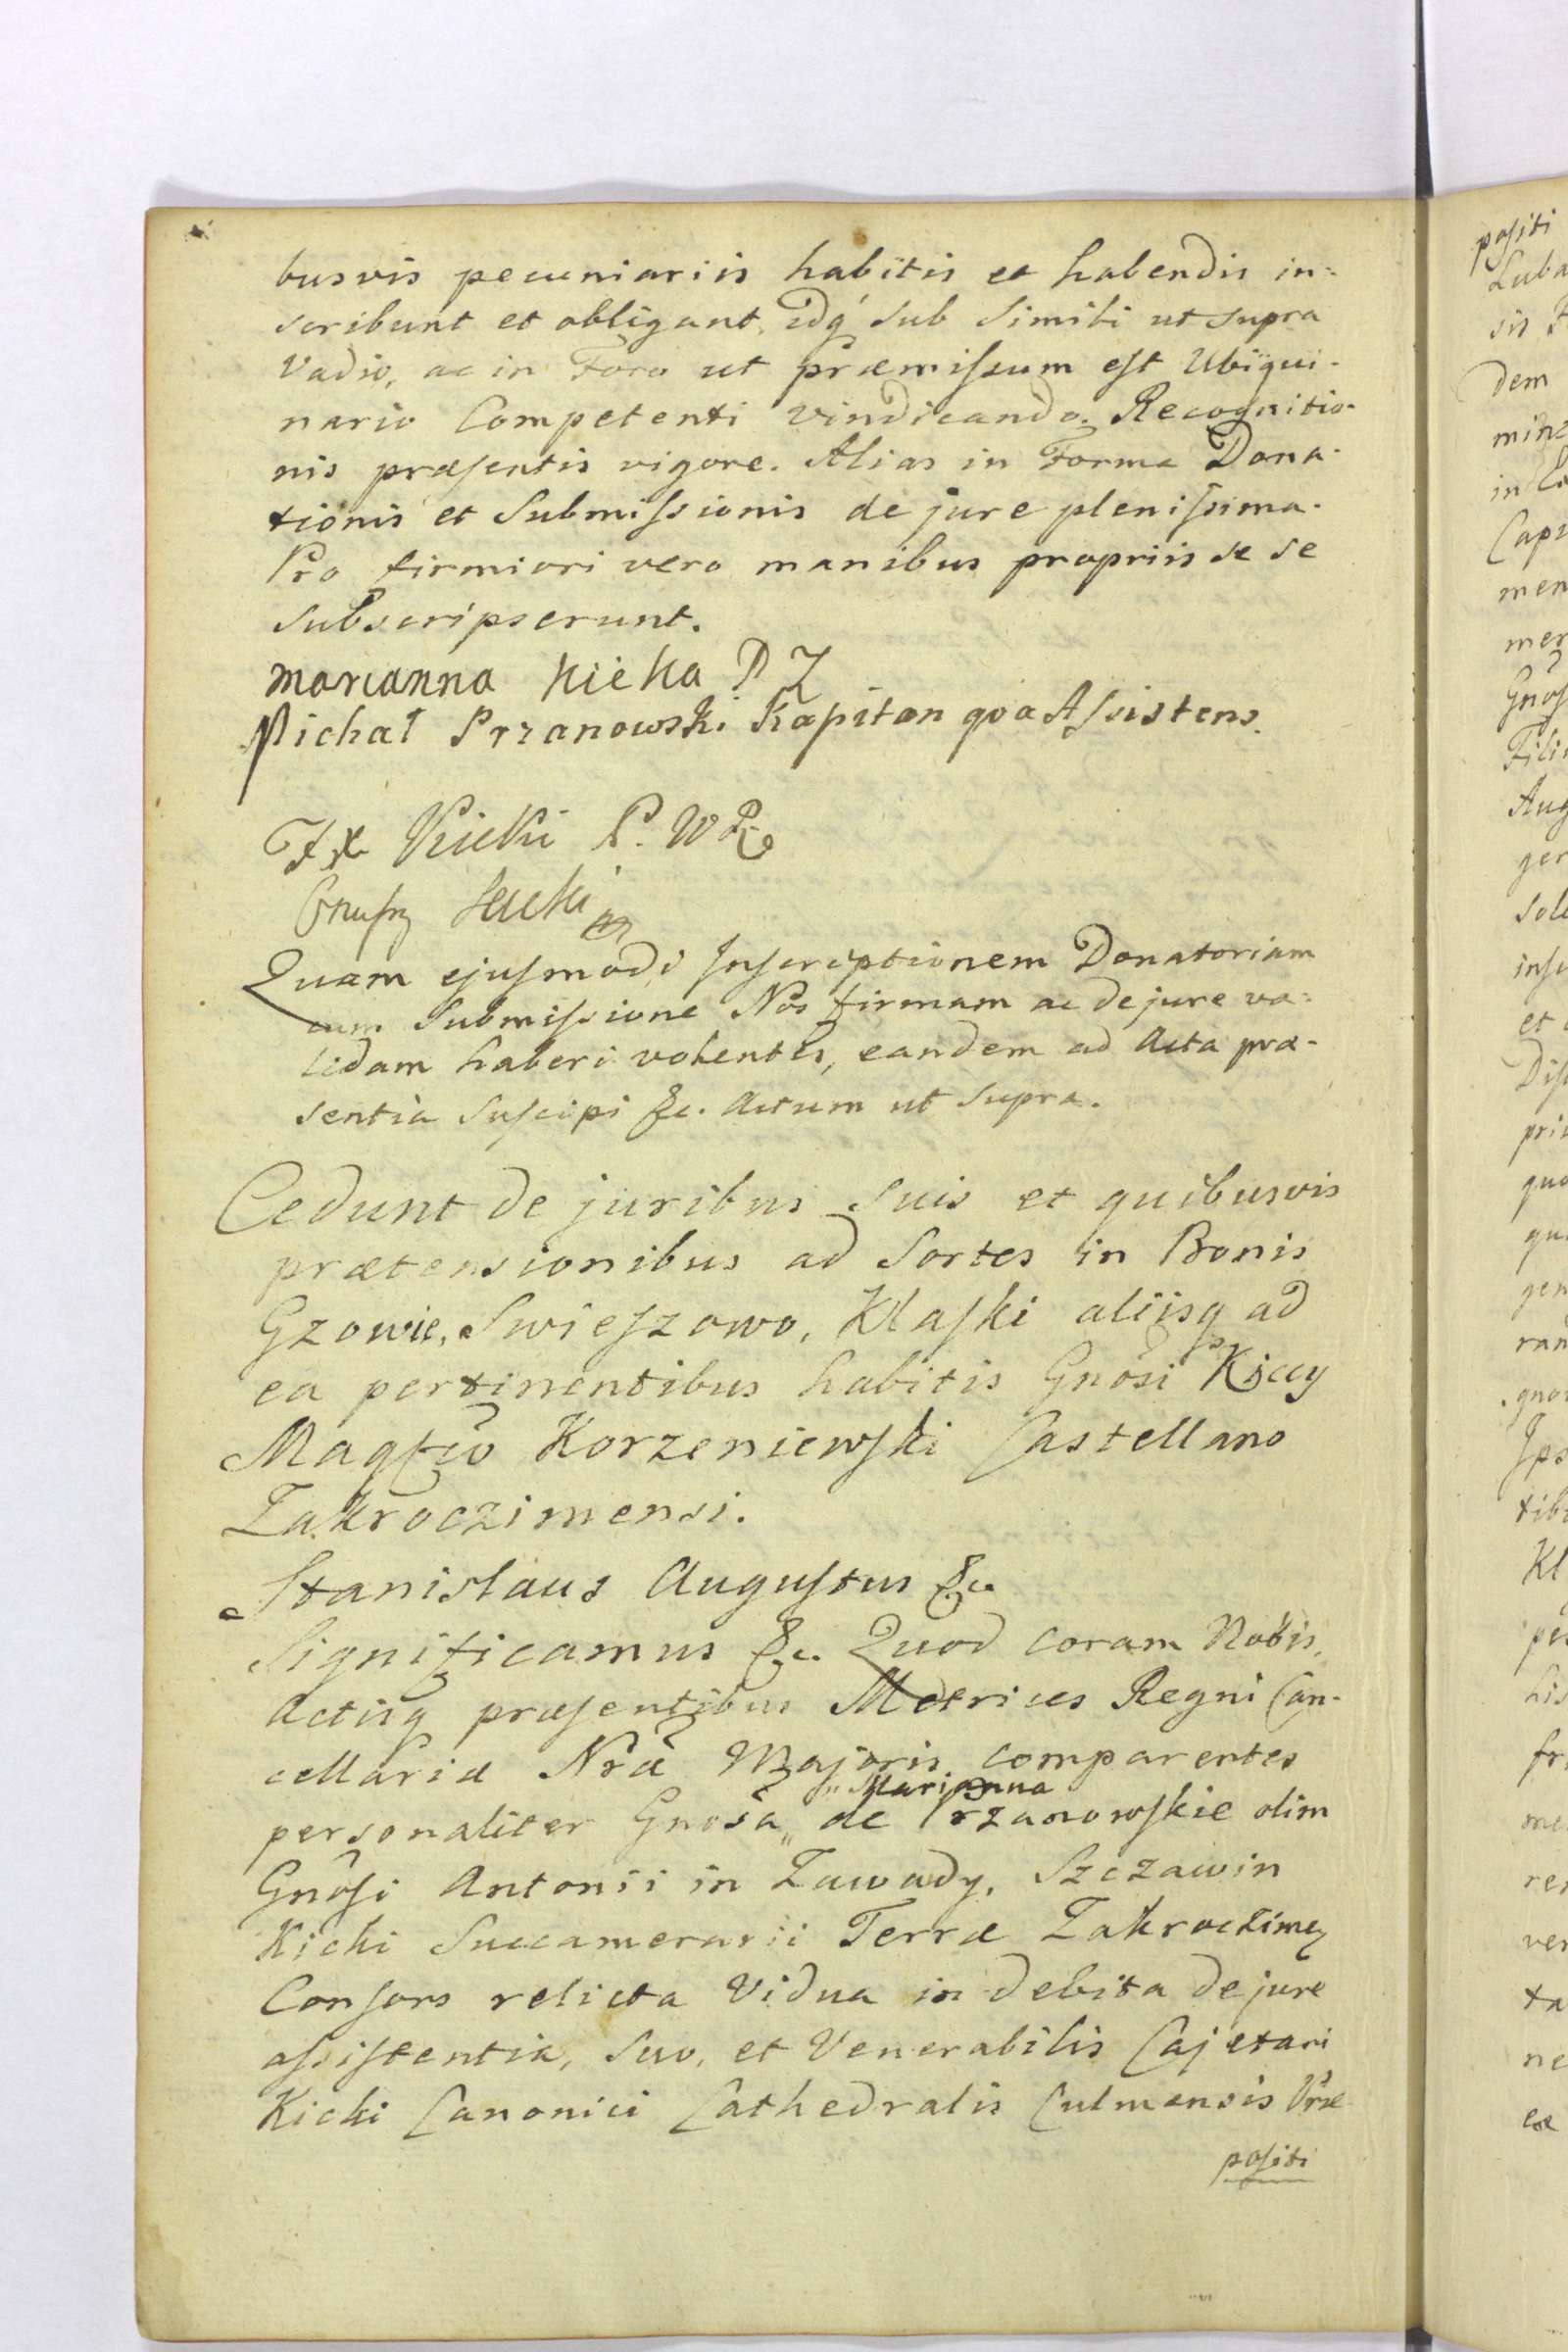 busvis pecuniariis habitis et habendis in-
scribunt et obligant, idq́ sub simili ut supra
Vadio, ac in Foro ut præmiſsum eſt Ubiqui-
nario Competenti vindicando. Recognitio-
nis præſentis vigore. Alias in Forma Dona-
tionis et Submiſsionis de jure pleniſsima.
Pro firmiori vero manibus propriis se se
subscripserunt.
Marianna Kicka P Z
Michał Przanowski Kapitan qva Aſsistens.
Kicki P. W
Kicki
Quam ejuſmodi Inſcriptionem Donatoriam
cum Submiſsione Nos firmam ac de jure va-
lidam haberi volentes, eandem ad Acta præ-
sentia suſcipi &c. Actum ut supra.
Cedunt de juribus suis et quibusvis
prætensionibus ad Sortes in Bonis
Gzowie, Swieſzowo, Klaſki aliisq ad
ea pertinentibus habitis Gnosi Kiccy
Magco Korzeniewſki Castellano
Zakroczimensi.
Stanislaus Auguſtus &c.
Significamus &c. Quod coram Nobis,
Actisq præſentibus Metrices Regni Can-
cellariæ Nræ Majoris comparentes
„ Marianna
personaliter Gnosa „ de Przanowſkie olim
Gnoſi Antonii in Zawady, Szczawin
Kicki Succamerarii Terræ Zakroczimen
Conſors relicta Vidua in debita de jure
aſsiſtentia, suo, et Venerabilis Cajetani
Kicki Canonici Cathedralis Culmensis Præ-
poſiti